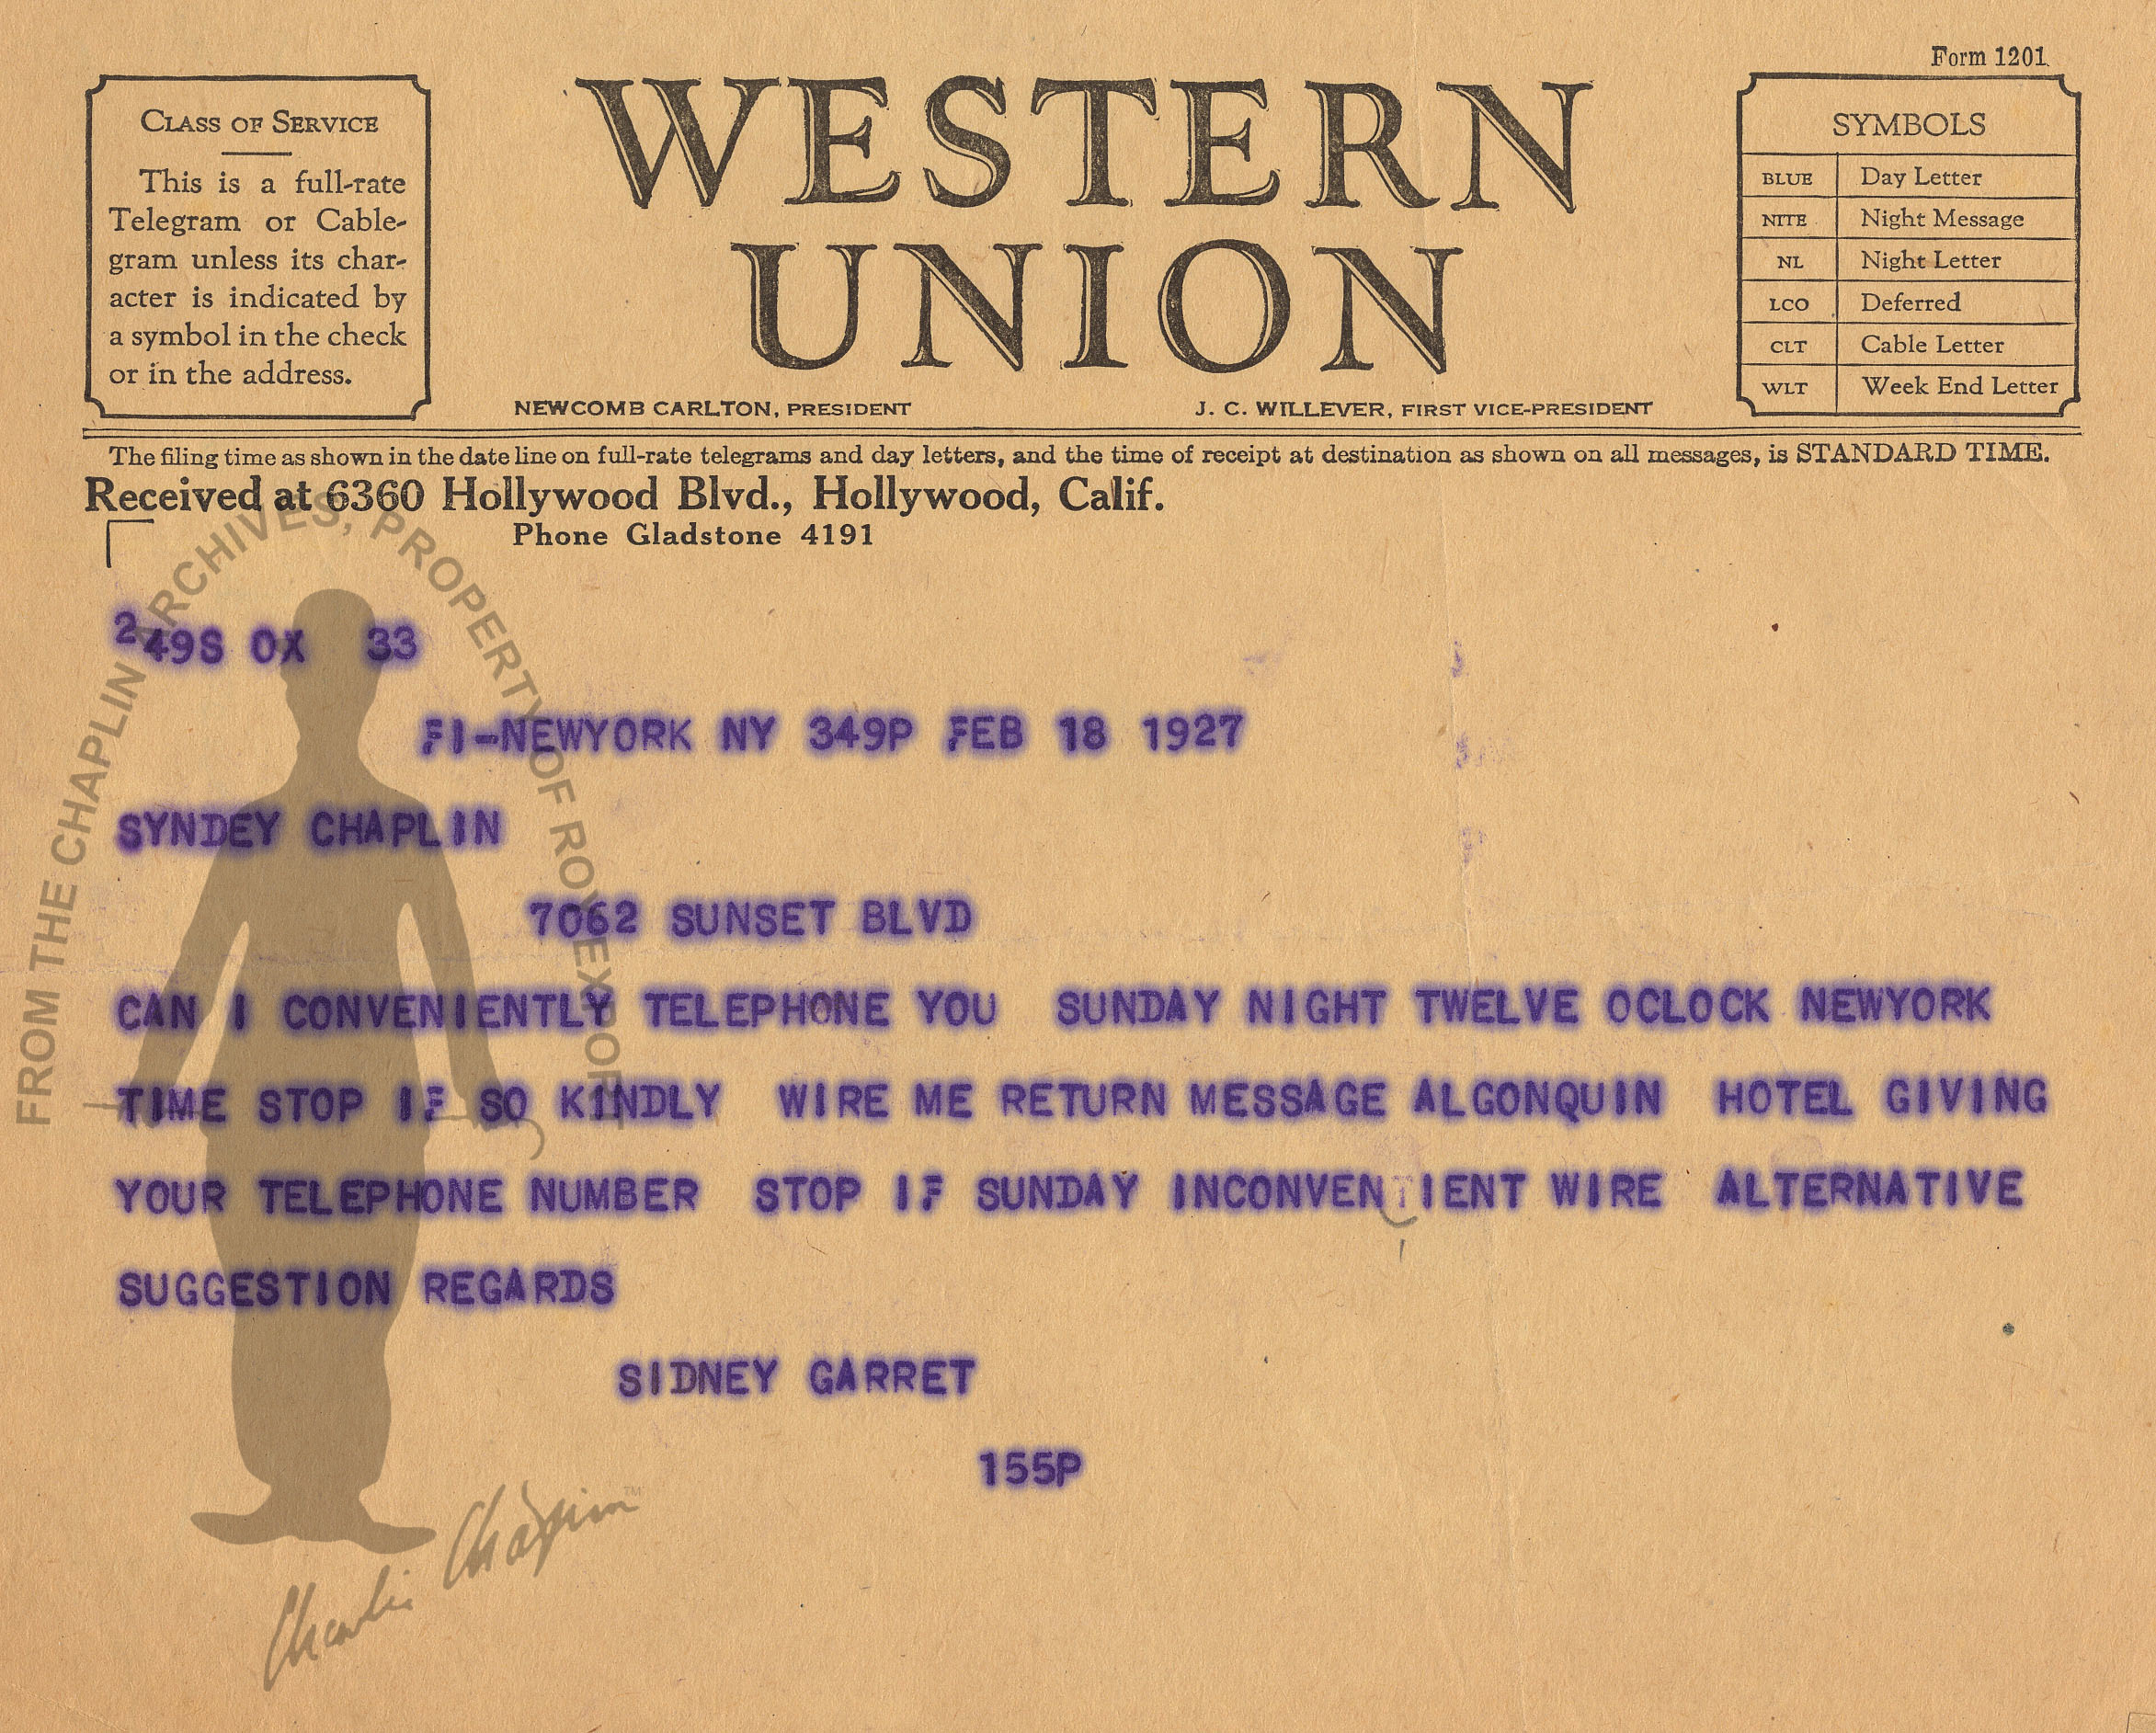 Form 1201
CLASS OF SERVICE
This is a full-rate
Telegram or Cable-
gram unless its char-
acter is indicated by
a symbol in the check
or in the address.
WESTERN
UNION
NEWCOMB CARLTON, PRESIDENT
J. C. WILLEVER, FIRST VICE-PRESIDENT
SYMBOLS
BLUE Day Letter
NITE Night Message
NL Night Letter
LCO Deferred
CLT Cable Letter
WLT Week End Letter
The filing time as shown in the date line on full-rate telegrams and day letters, and the time of receipt at destination as shown on all messages, is STANDARD TIME.
Received at 6360 Hollywood Blvd., Hollywood, Calif.
Phone Gladstone 4191
249S OX 33
FI-NEWYORK NY 349P FEB 18 1927
SYNDEY CHAPLIN
7062 SUNSET BLVD
CAN I CONVENIENTLY TELEPHONE YOU SUNDAY NIGHT TWELVE OCLOCK NEWYORK
TIME STOP IF SO KINDLY WIRE ME RETURN MESSAGE ALGONQUIN HOTEL GIVING
YOUR TELEPHONE NUMBER STOP IF SUNDAY INCONVENTIENT WIRE ALTERNATIVE
SUGGESTION REGARDS
SIDNEY GARRET
155P
FROM THE CHAPLIN ARCHIVES, PROPERTY OF ROY EXPORT
Charlie Chaplin™